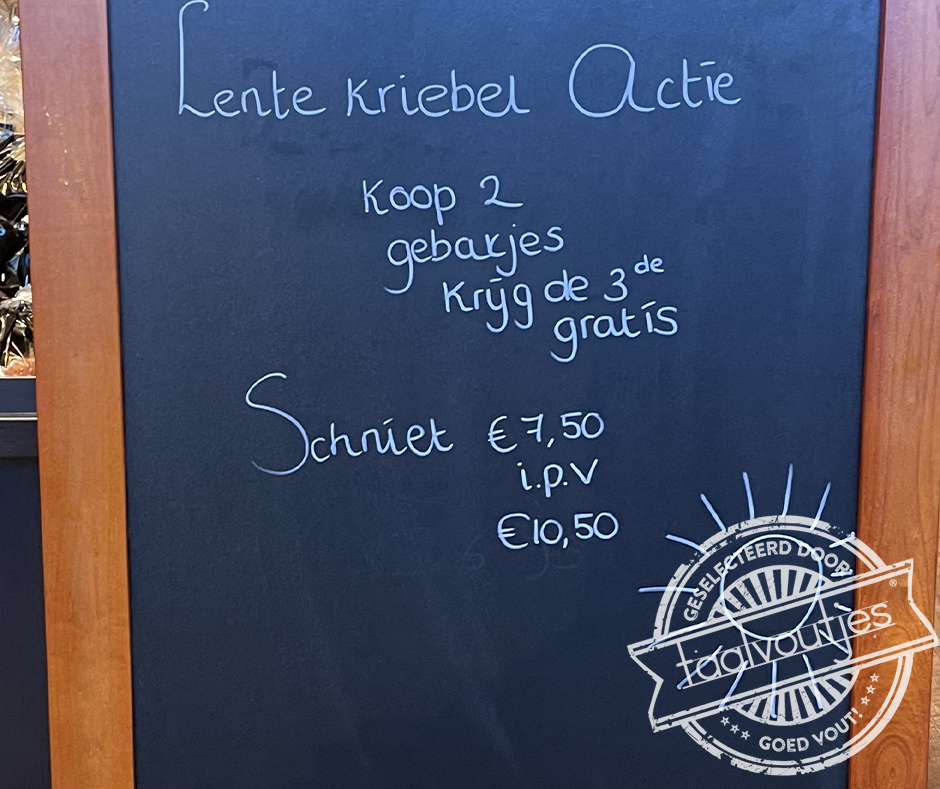 Lente kriebel Actie
Koop 2
gebakjes
Krijg de 3de
gratis
Schniet €7,50
i.p.v
€10,50
GESELECTEERD DOOR
taalvoutjes®
GOED VOUT!